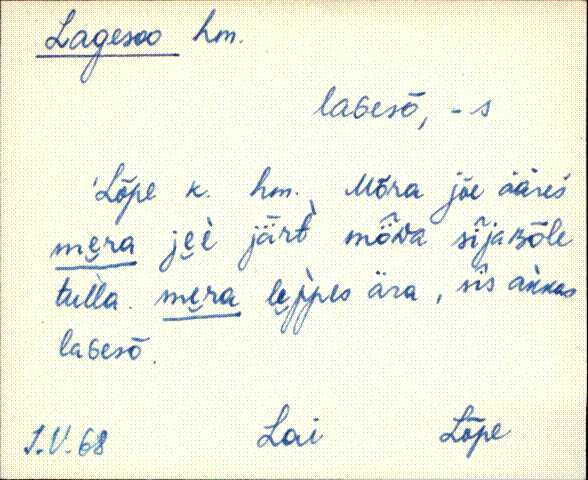 Lagesoo hm.
laGesō, -s
'Lõpe k. hm. Mõra jõe ääres
mẹra jẹè järt̀ mööDa sījaBõle
tulla. mẹra lẹp̀pes ära, sīs aǹnas
laGesō.
J.V.68 Lai Lõpe